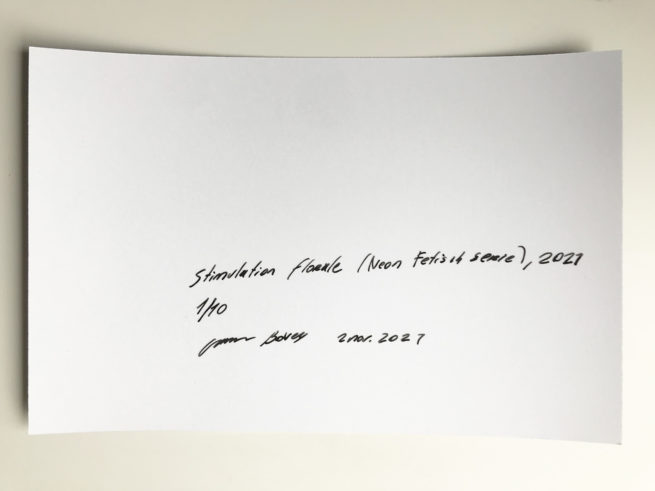 Stimulation florale (Neon Fetish serie), 2021
1/10
Bovey 2 nov. 2021